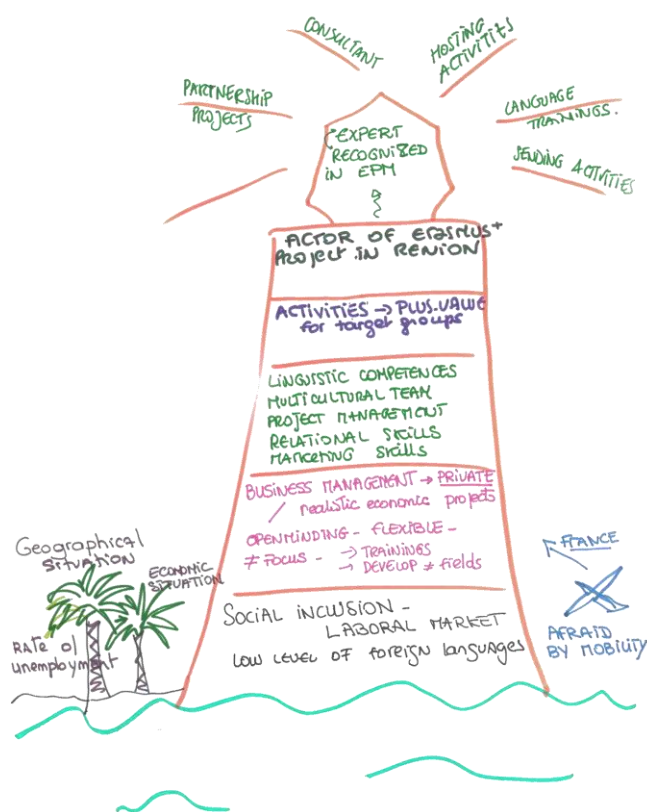 CONSULTANT
HOSTING
ACTIVITIES
PARTNERSHIP
PROJECTS
LANGUAGE
TRAININGS.
SENDING ACTIVITIES
EXPERT
RECOGNIZED
IN EPM
ACTOR OF ERASMUS+
PROJECT IN RENION
ACTIVITIES → PLUS.VALUE
for target groups
LINGUISTIC COMPETENCES
MULTICULTURAL TEAM
PROJECT MANAGEMENT
RELATIONAL SKILLS
MARKETING SKILLS
BUSINESS MANAGEMENT → PRIVATE
/ realistic economic projects
OPENMINDING - FLEXIBLE -
≠ FOCUS - → TRAININGS
→ DEVELOP ≠ fields
SOCIAL INCLUSION -
LABORAL MARKET
LOW LEVEL OF foreign languages
Geographical
SITUATION
ECONOMIC
SITUATION
RATE OF
unemployment
FRANCE
AFRAID
BY MOBILITY